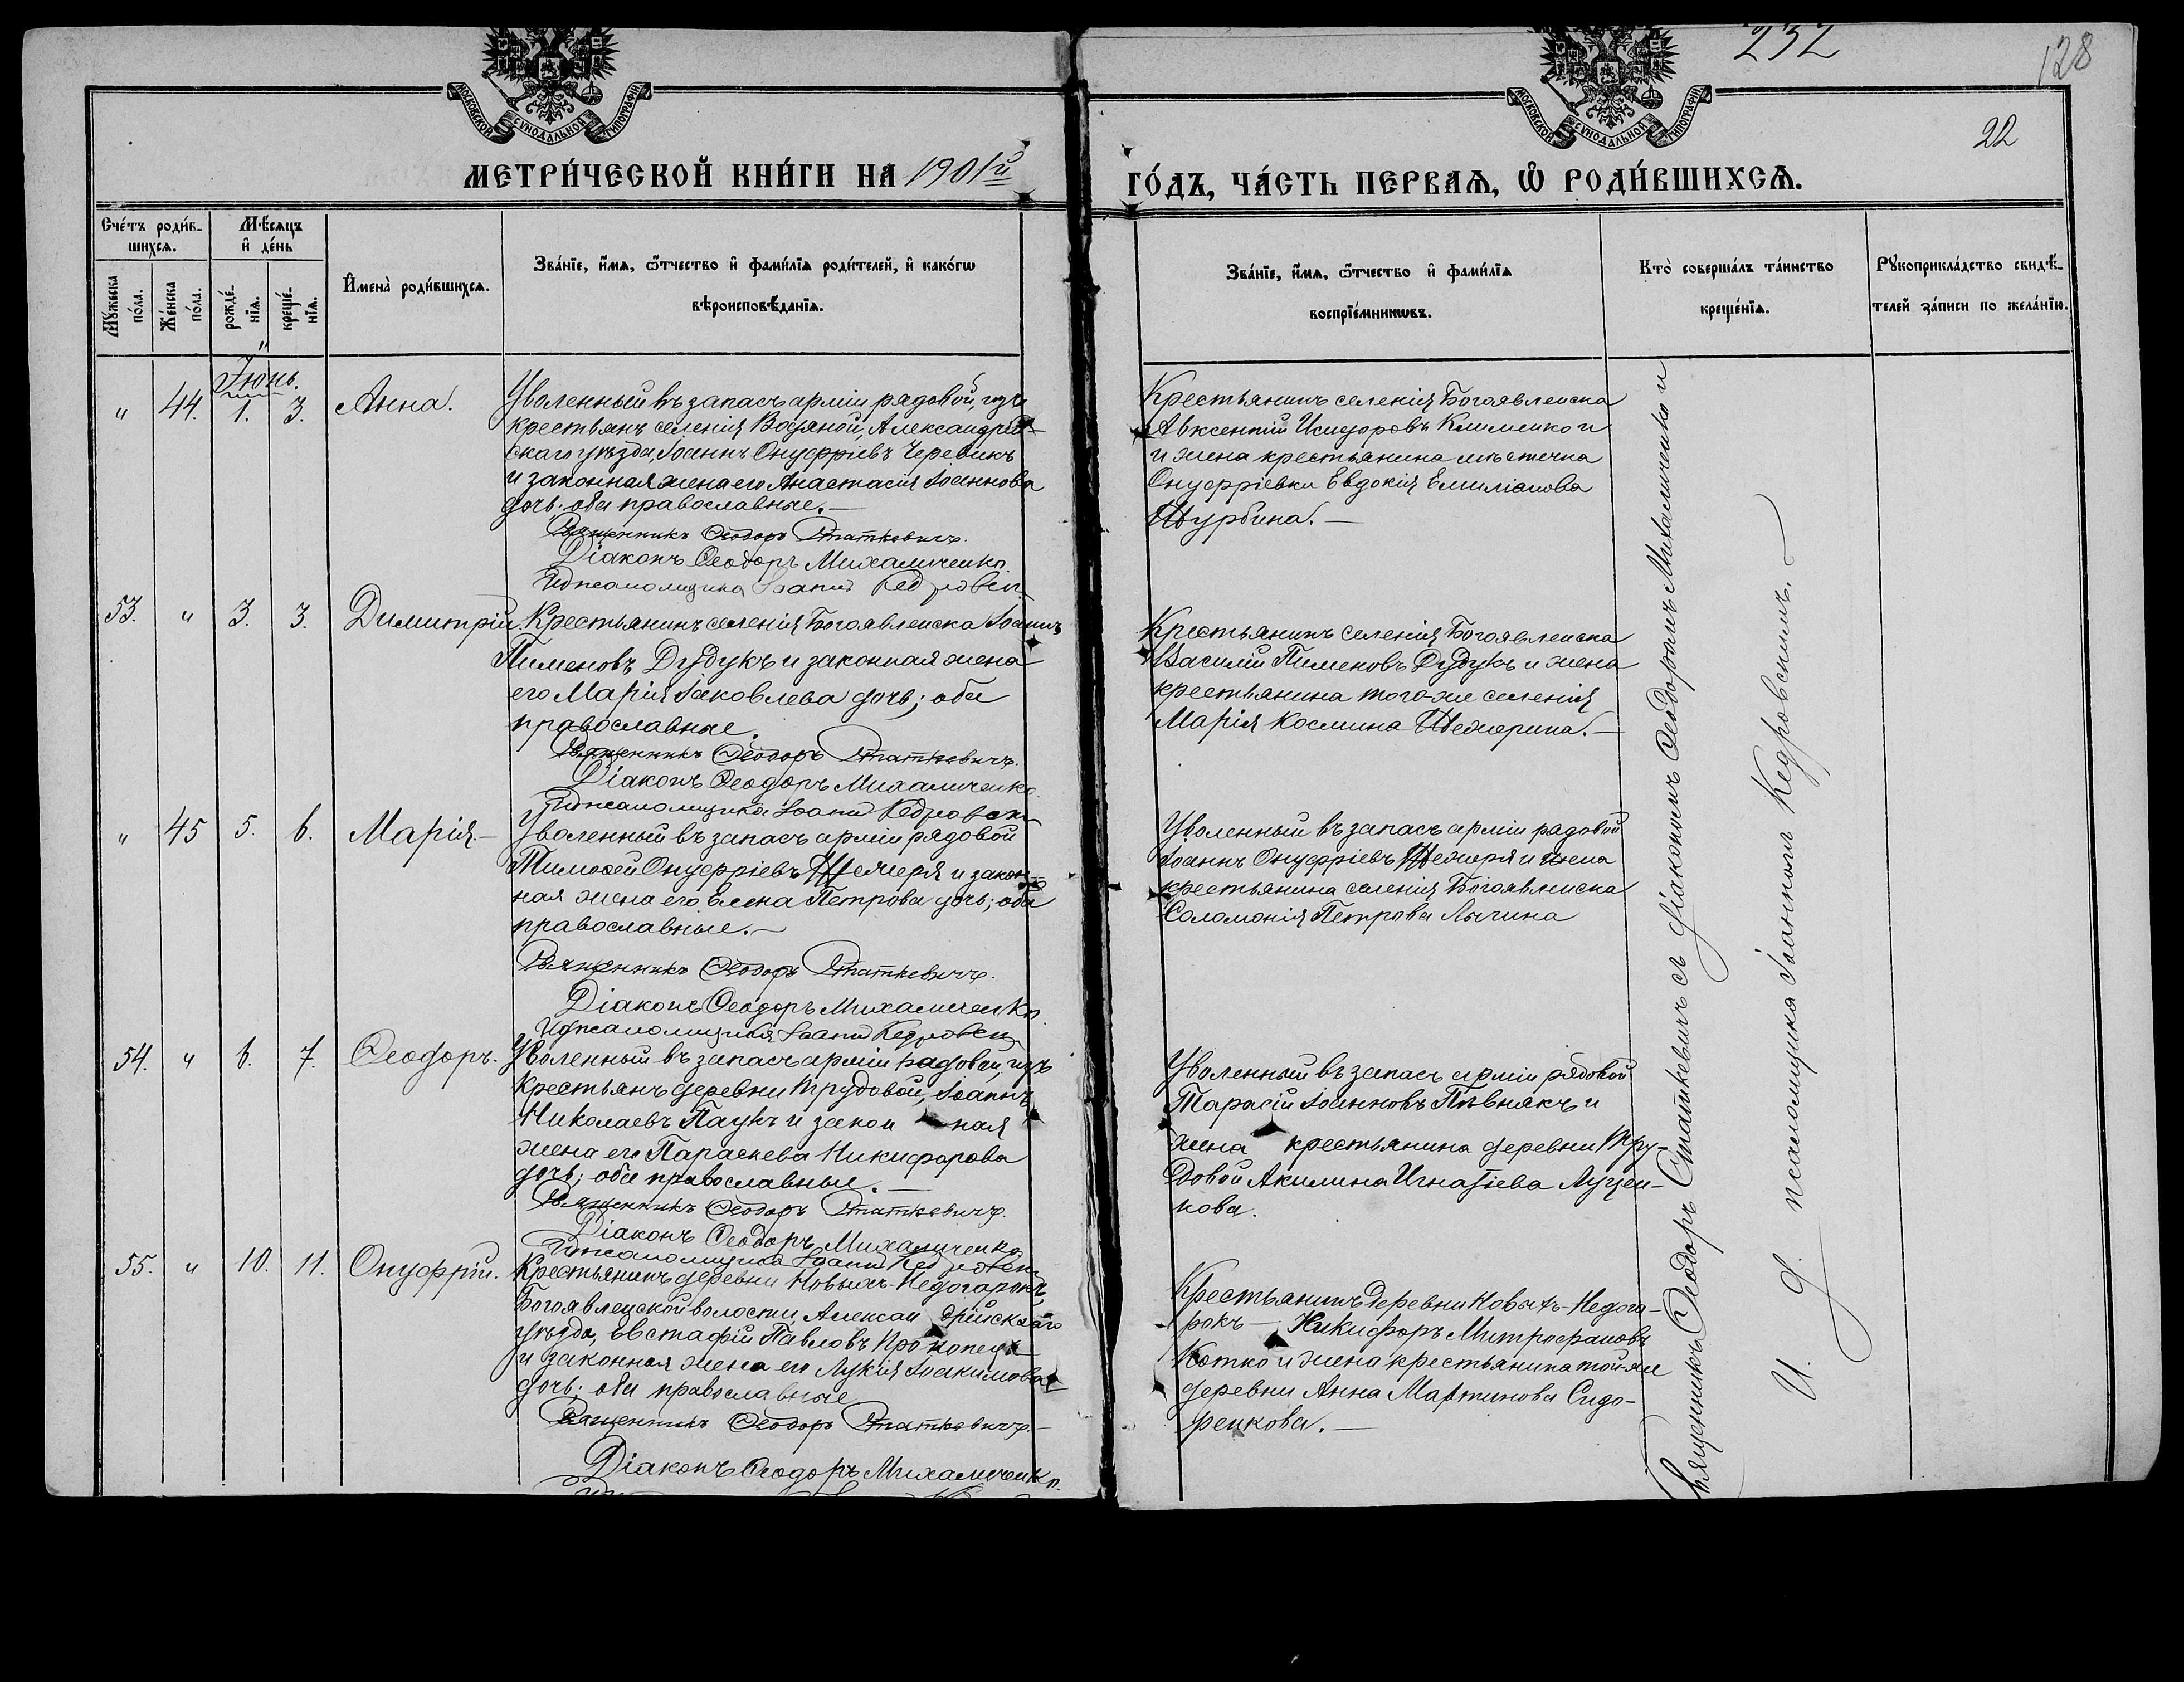 232
128
22
МОСКОВСКОЙ СѴНОДАЛЬНОЙ ТИПОГРАФІИ
МОСКОВСКОЙ СѴНОДАЛЬНОЙ ТИПОГРАФІИ
МЕТРИ́ЧЕСКОЙ КНИ́ГИ НА 1901й
ГО́ДЪ, ЧА́СТЬ ПЕРВАѦ, Ѡ РОДИ́ВШИХСѦ.
Сче́тъ роди́в-
шихсѧ.
Мѣ́сѧцъ
и҆ де́нь
Му́жеска
по́ла.
Же́нска
по́ла.
рожде́-
нїѧ.
креще́-
нїѧ.
И҆мена̀ роди́вшихсѧ.
Зва́нїе, и҆́мѧ, ѻ҆́тчество и҆ фами́лїѧ роди́телей, и҆ како́гѡ
вѣроисповѣ́данїѧ.
Зва́нїе, и҆́мѧ, ѻ҆́тчество и҆ фами́лїѧ
воспрїе́мникѡвъ.
Кто̀ соверша́лъ та́инство
креще́нїѧ.
Рꙋкоприкла́дство свидѣ́-
телей за́писи по жела́нїю.
Іюнь.
" 44. 1. 3. Анна.
Уволенный въ запасъ арміи рядовой, изъ
крестьянъ селенія Водяной, Александрій-
скаго уѣзда Іоаннъ Онуфріевъ Черевикъ
и законная жена его Анастасія Іоаннова
дочь; оба православные.—
Священникъ Ѳеодоръ Статкевичъ.
Діаконъ Ѳеодоръ Михаличенко.
И д псаломщика Іоаннъ Кедровскій
Крестьянинъ селенія Богоявленска
Авксентій Исидоровъ Клименко и
и жена крестьянина мѣстечка
Онуфріевки Евдокія Емиліанова
Шурбина.—
53. " 3. 3. Димитрій.
Крестьянинъ селенія Богоявленска Іоаннъ
Пименовъ Дудукъ и законная жена
его Марія Іаковлева дочь; оба
православные.
Священникъ Ѳеодоръ Статкевичъ.
Діаконъ Ѳеодоръ Михаличенко.
И д псаломщика Іоаннъ Кедровскій
Крестьянинъ селенія Богоявленска
Василій Пименовъ Дудукъ и жена
крестьянина того-же селенія
Марія Космина Шемерина.—
" 45 5. 6. Марія.—
Уволенный въ запасъ арміи рядовой
Тимоѳей Онуфріевъ Шемеря и закон-
ная жена его Елена Петрова дочь; оба
православные.—
Священникъ Ѳеодоръ Статкевичъ.
Діаконъ Ѳеодоръ Михаличенко.
И д псаломщика Іоаннъ Кедровскій
Уволенный въ запасъ арміи рядовой
Іоаннъ Онуфріевъ Шемеря и жена
крестьянина селенія Богоявленска
Соломонія Петрова Лычина
54. " 6. 7. Ѳеодоръ.
Уволенный въ запасъ арміи рядовой, изъ
крестьянъ деревни Трудовой, Іоаннъ
Николаевъ Паукъ и закон ная
жена его Параскева Никифорова
дочь; оба православные.—
Священникъ Ѳеодоръ Статкевичъ.
Діаконъ Ѳеодоръ Михаличенко
И д псаломщика Іоаннъ Кедровскій
Уволенный въ запасъ арміи рядовой
Тарасій Іоанновъ Пивнякъ и
жена крестьянина деревни Тру-
довой Акилина Игнатіева Луцен-
кова.
55. " 10. 11. Онуфрій.
Крестьянинъ деревни Новыхъ-Недогарокъ,
Богоявленской волости, Алексан дрійскаго
уѣзда, Евстафій Павловъ Прокопецъ
и законная жена его Лукія Іоакимова
дочь; оба православные
Священникъ Ѳеодоръ Статкевичъ.—
Діаконъ Ѳеодоръ Михаличенко.
Крестьянинъ деревни Новыхъ-Недога-
рокъ— Никифоръ Митрофановъ
Котко и жена крестьянина той-же
деревни Анна Мартинова Сидо-
ренкова.—
Священникъ Ѳеодоръ Статкевичъ съ діакономъ Ѳеодоромъ Михаличенко и
И. д. псаломщика Іоанномъ Кедровскимъ.—